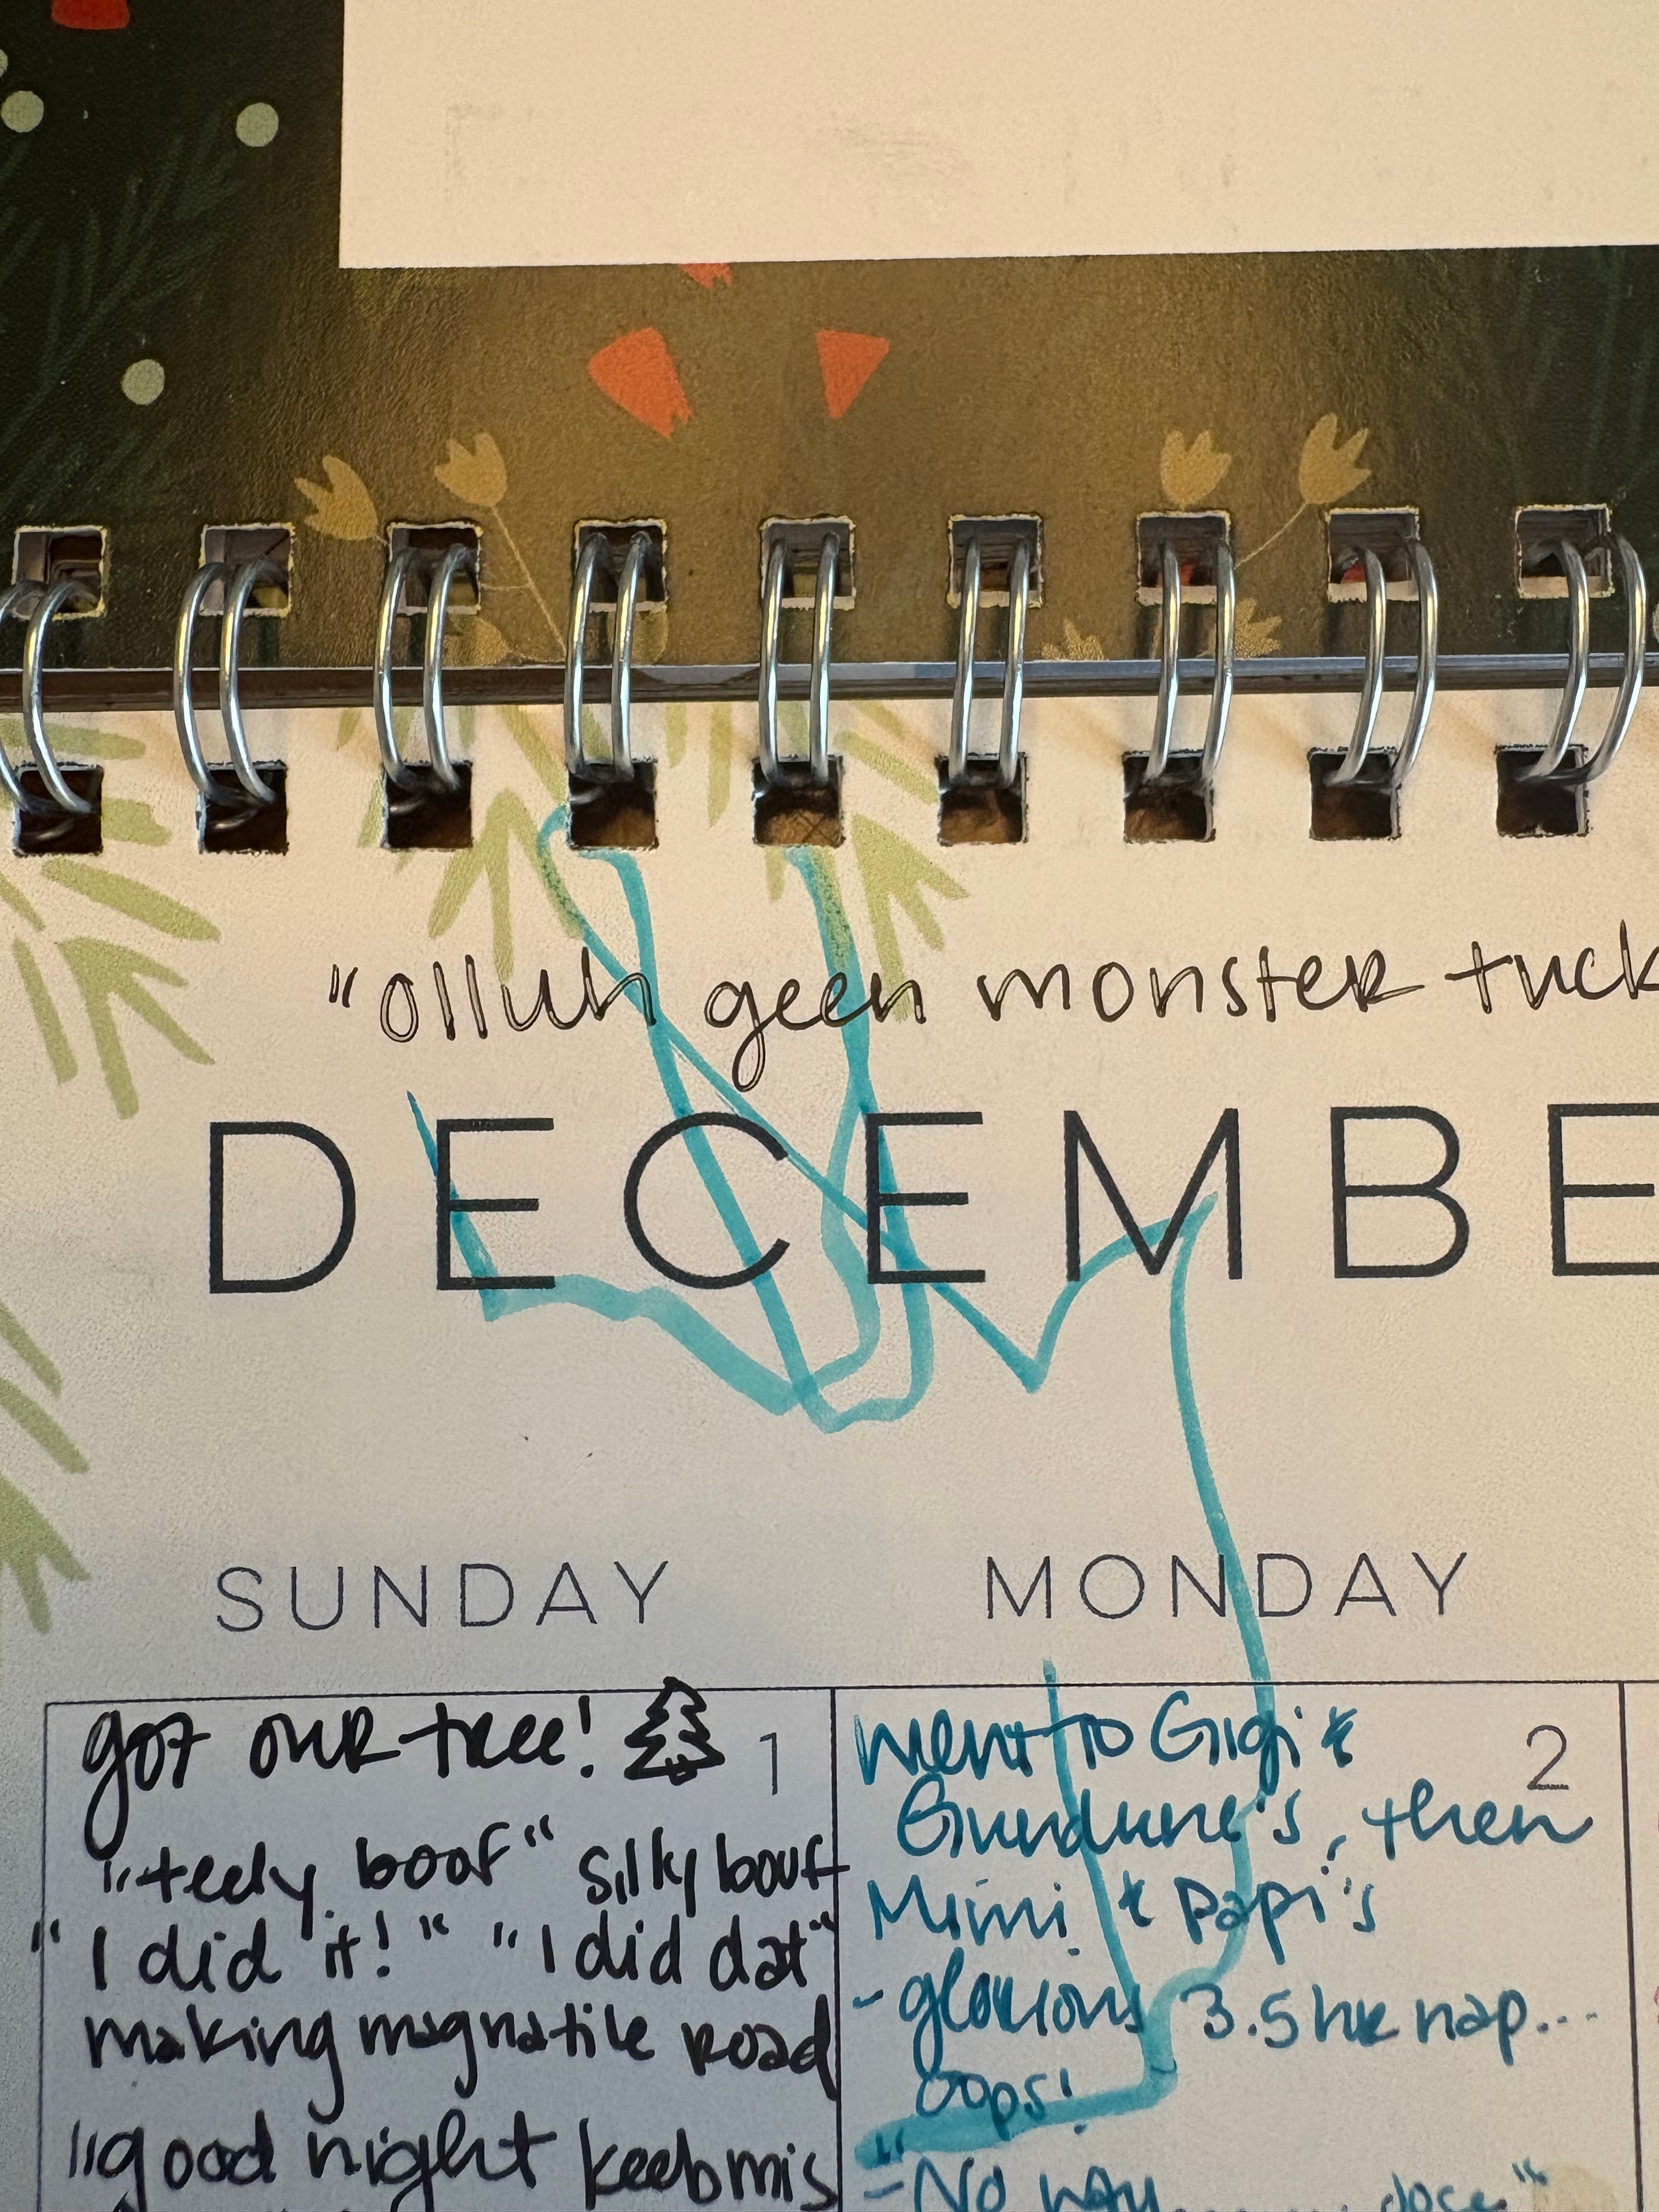 "olluh geen monster tuck
DECEMBE
SUNDAY MONDAY
got our tree! 1
"teely boof" silky bouf
"I did it!" "I did dat"
making magnatile road
"good night keebmis
went to Gigi & 2
Grundune's, then
Mimi & Papi's
- glorious 3.5 hr nap...
oops!
"-No way